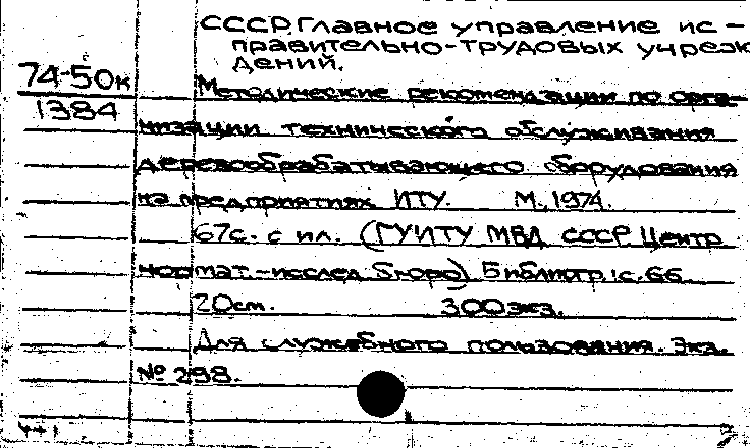 СССР. Главное управление ис-
правительно-трудовых учреж
дений.
74-50к
1384
Методические рекомендации по орга-
низации технического обслуживания
деревообрабатывающего оборудования
на предприятиях ИТУ. М., 1974.
67с. с ил. (ГУИТУ МВД СССР Центр
нормат.-исслед. бюро) Библиогр.: с. 66
20см. 300экз.
Для служебного пользования. Экз.
№ 298.